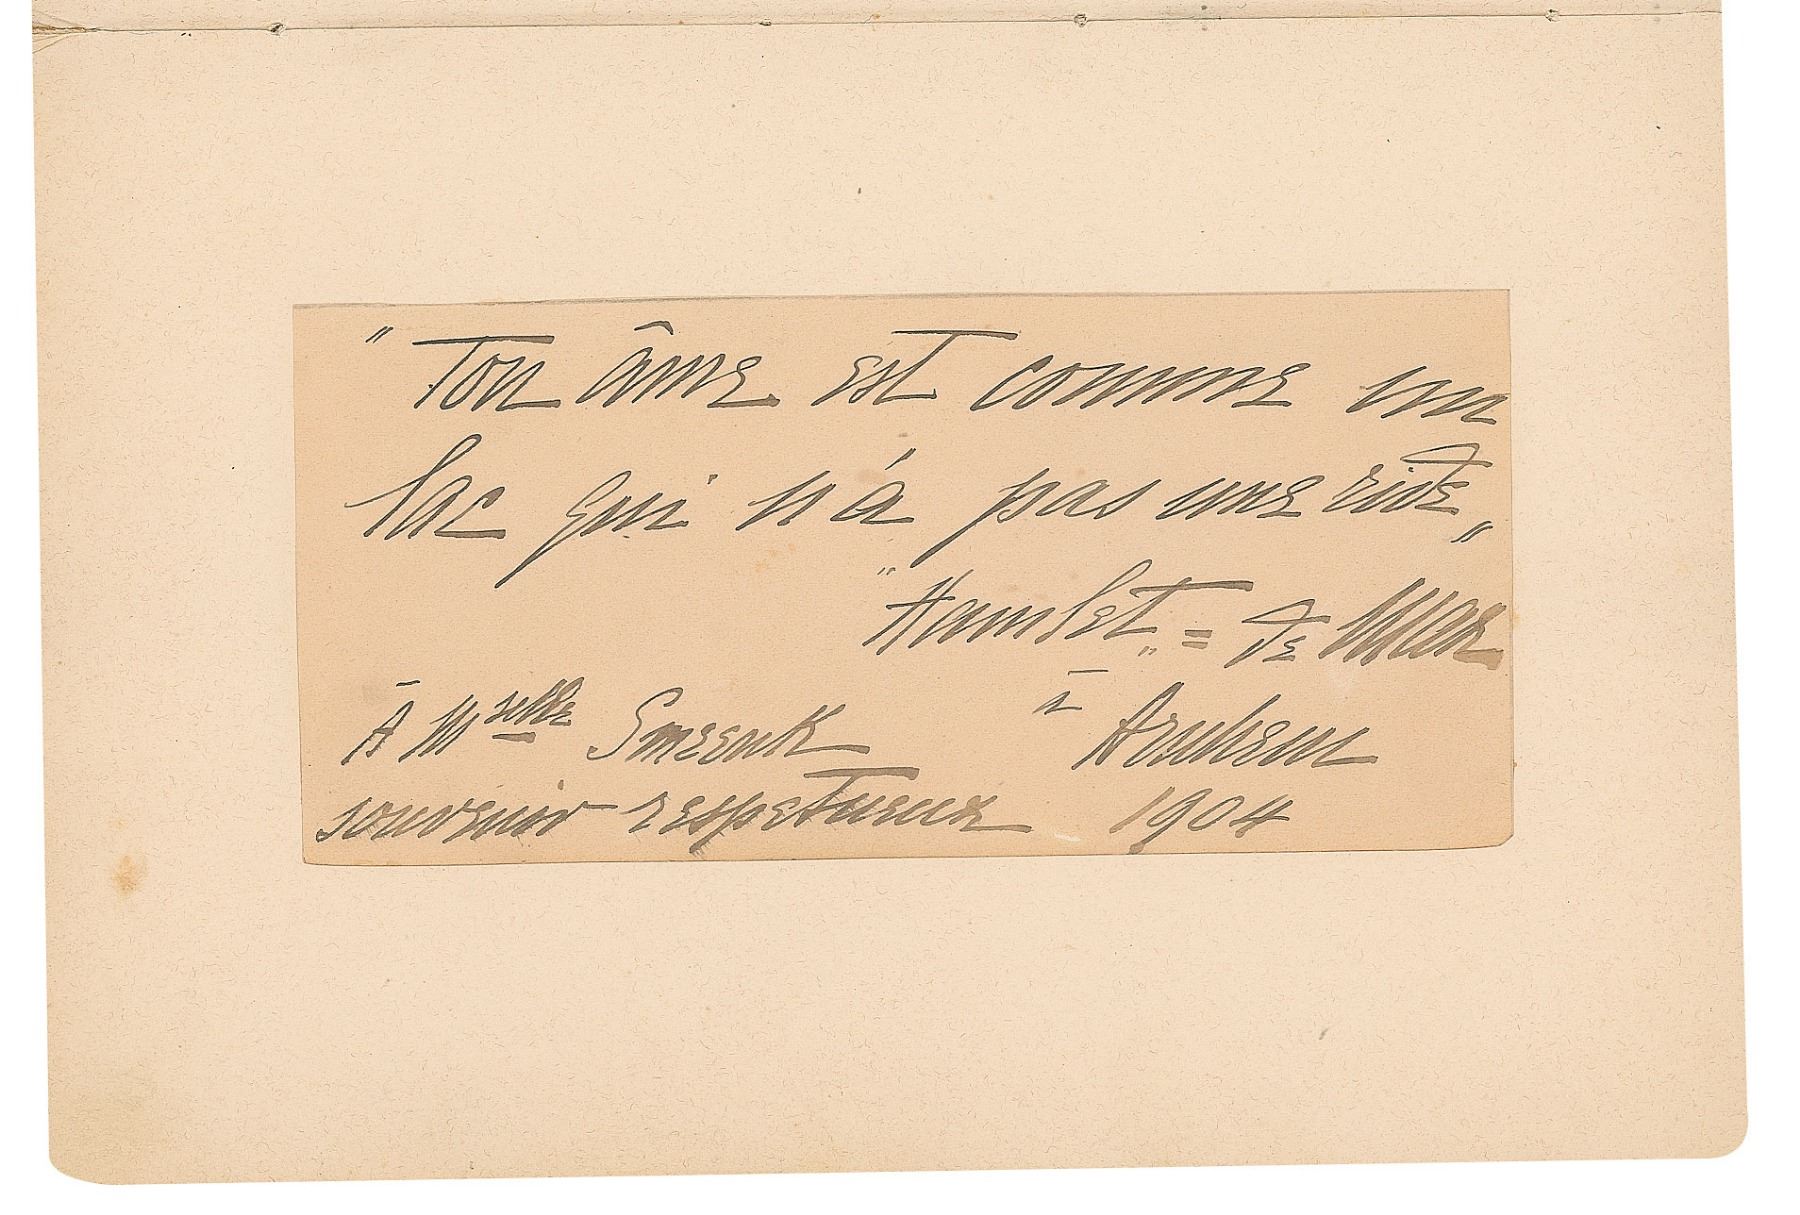 " Ton âme est comme un
lac qui n'a pas une ride "
" Hamlet " = De Max
À Mselle Smeenk
souvenir respetueux
à Arnhem
1904